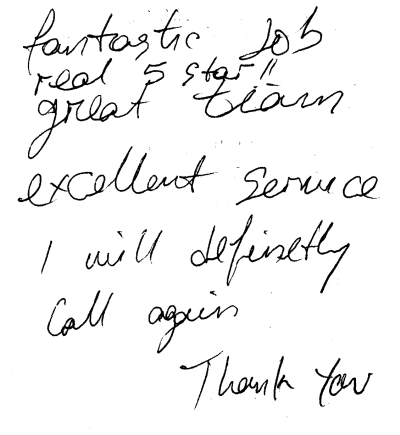 fantastic Job
real 5 star !!
great team
excellent service
I will definetly
Call again
Thank You